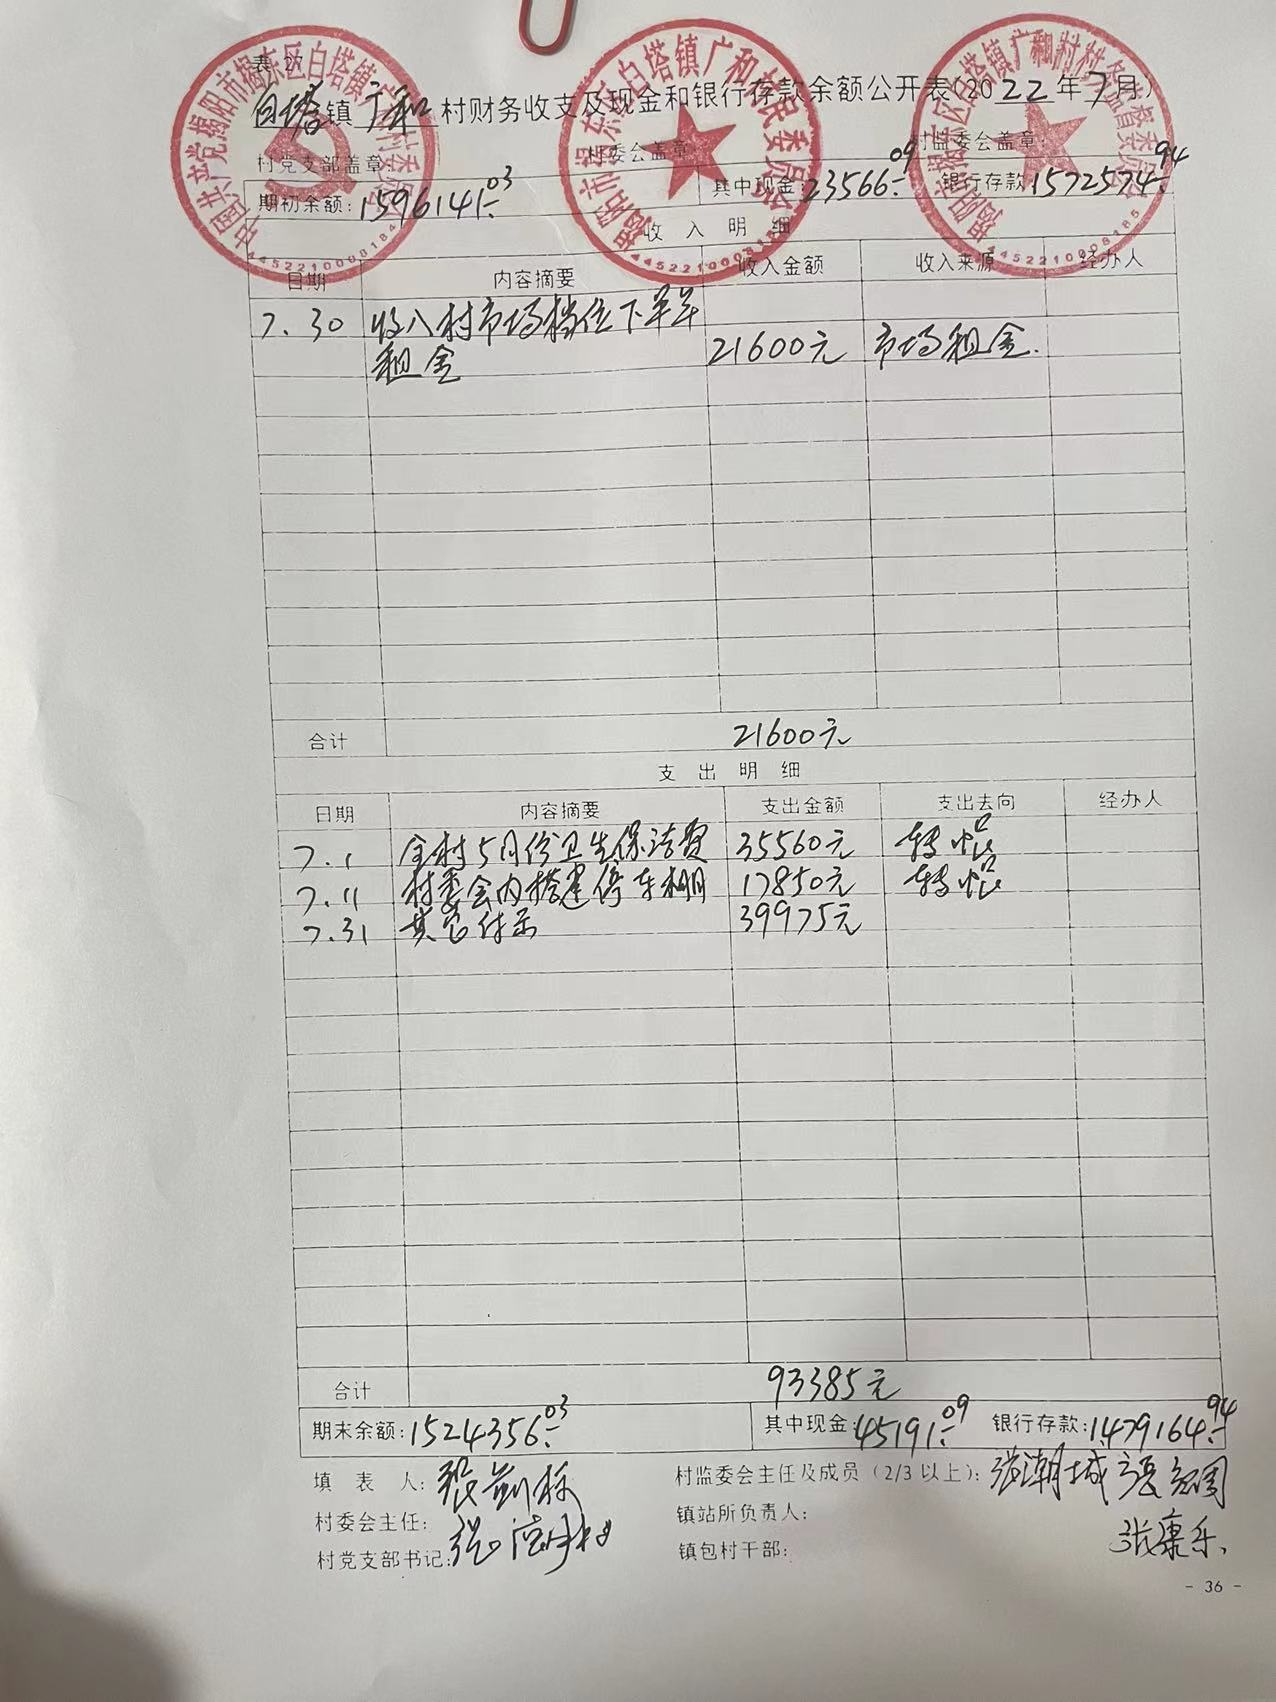 表 27
白塔镇广和村财务收支及现金和银行存款余额公开表(2022年7月)
村党支部盖章: 村委会盖章 村监委会盖章:
期初余额:1596141.03 其中现金:23566.09 银行存款:1572574.94
收 入 明 细
日期 内容摘要 收入金额 收入来源 经办人
7.30 收入村市场档位下半年
租金 21600元 市场租金.
合计 21600元
支 出 明 细
日期 内容摘要 支出金额 支出去向 经办人
7.1 全村5月份卫生保洁费 35560元 转帐
7.11 村委会内搭建停车棚 17850元 转帐
7.31 其它付示 39975元
合计 93385元
期末余额:1524356.03 其中现金:45191.09 银行存款:1479164.94
填 表 人: 村监委会主任及成员(2/3以上): 张潮城
村委会主任: 镇站所负责人:
村党支部书记: 镇包村干部: 张康乐
- 36 -
中国共产党揭阳市揭东区白塔镇广和村委员会
4452210008184
揭阳市揭东区白塔镇广和村民委员会
揭阳市揭东区白塔镇广和村村务监督委员会
4452210008185